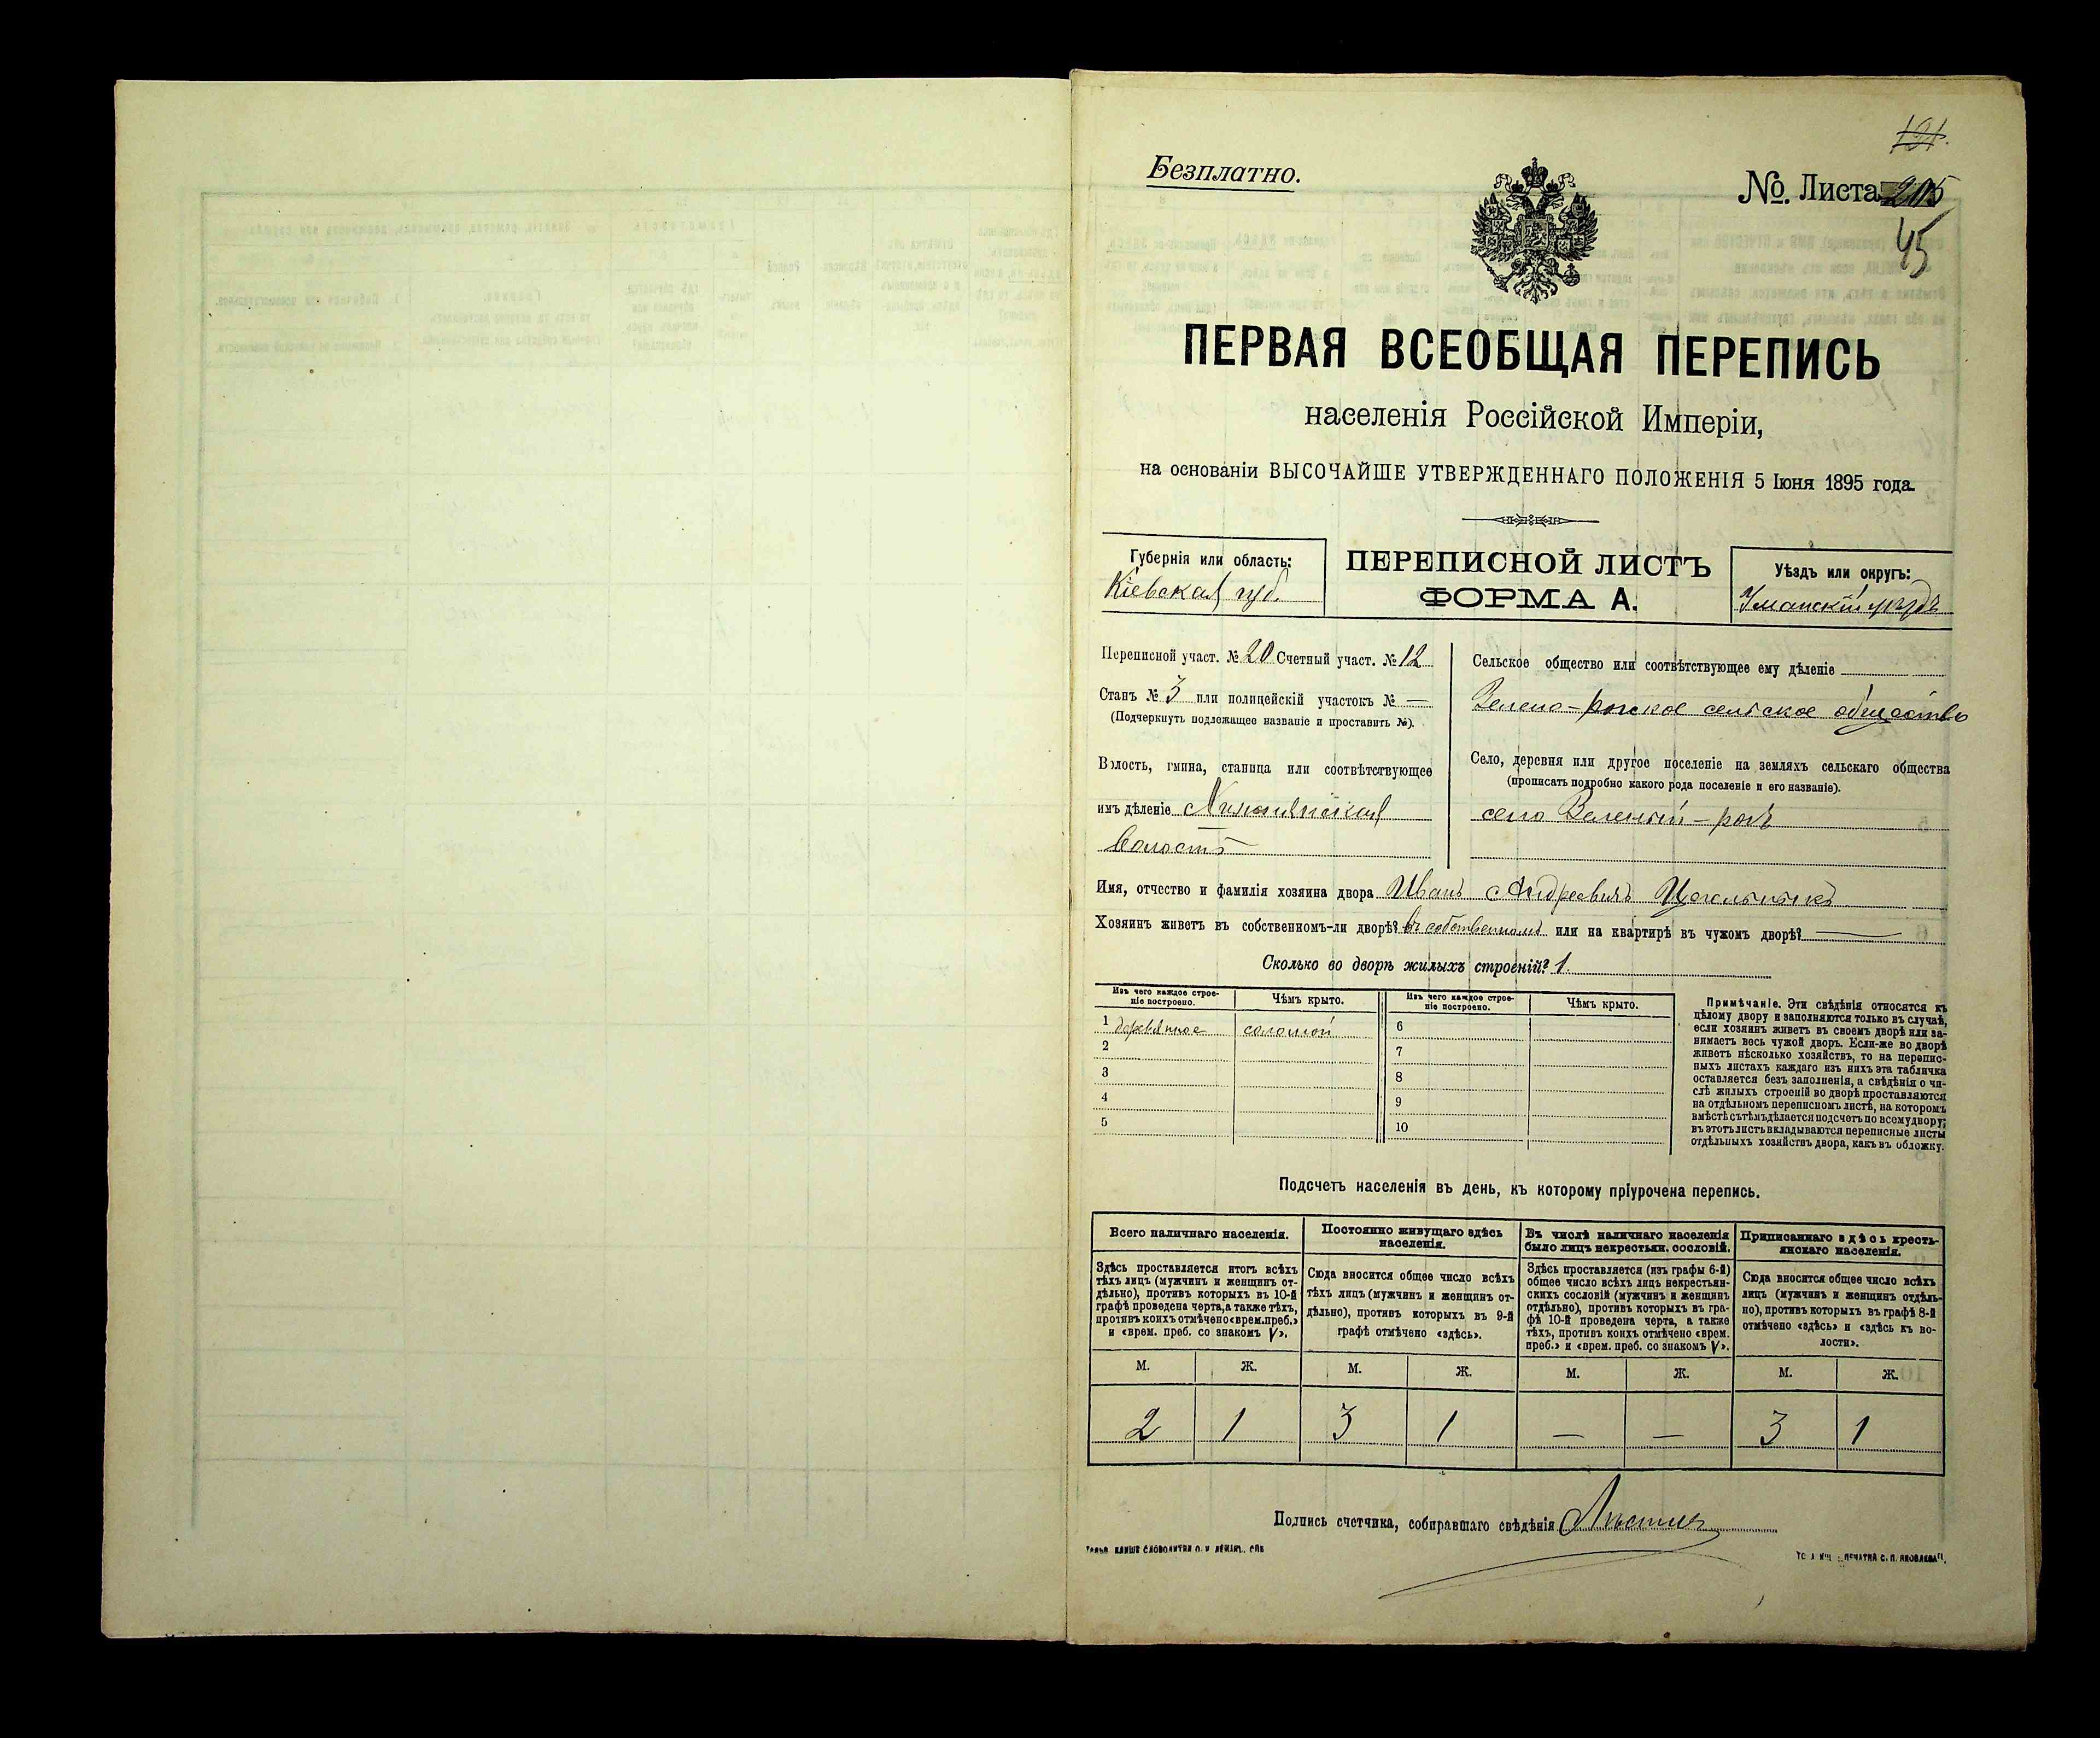 121.
Безплатно.
№. Листа 205
45
ПЕРВАЯ ВСЕОБЩАЯ ПЕРЕПИСЬ
населенія Россійской Имперіи,
на основаніи ВЫСОЧАЙШЕ УТВЕРЖДЕННАГО ПОЛОЖЕНІЯ 5 Іюня 1895 года.
Губернія или область:
Кіевская губ.
ПЕРЕПИСНОЙ ЛИСТЪ
ФОРМА А.
Уѣздъ или округъ:
Уманскій уѣздъ
Переписной участ. № 20 Счетный участ. № 12
Станъ № 3 или полицейскій участокъ № —
(Подчеркнуть подлежащее названіе и проставить №).
Волость, гмина, станица или соотвѣтствующее
имъ дѣленіе
волость
Сельское общество или соотвѣтствующее ему дѣленіе
Зелено-рогское сельское общество
Село, деревня или другое поселеніе на земляхъ сельскаго общества
(прописать подробно какого рода поселеніе и его названіе).
село Зеленый-рогъ
Имя, отчество и фамилія хозяина двора Иванъ Андреевичъ Цегельникъ
Хозяинъ живетъ въ собственномъ-ли дворѣ? въ собственномъ или на квартирѣ въ чужомъ дворѣ? —
Сколько во дворѣ жилыхъ строеній? 1.
Изъ чего каждое строеніе построено.
Чѣмъ крыто.
Изъ чего каждое строеніе построено.
Чѣмъ крыто.
1 деревянное соломой
2
3
4
5
6
7
8
9
10
Примѣчаніе. Эти свѣдѣнія относятся къ
цѣлому двору и заполняются только въ случаѣ,
если хозяинъ живетъ въ своемъ дворѣ или за-
нимаетъ весь чужой дворъ. Если-же во дворѣ
живетъ нѣсколько хозяйствъ, то на перепис-
ныхъ листахъ каждаго изъ нихъ эта табличка
оставляется безъ заполненія, а свѣдѣнія о чи-
слѣ жилыхъ строеній во дворѣ проставляются
на отдѣльномъ переписномъ листѣ, на которомъ
вмѣстѣ съ тѣмъ дѣлается подсчетъ по всему двору;
въ этотъ листъ вкладываются переписные листы
отдѣльныхъ хозяйствъ двора, какъ въ обложку.
Подсчетъ населенія въ день, къ которому пріурочена перепись.
Всего наличнаго населенія.
Постоянно живущаго здѣсь
населенія.
Въ числѣ наличнаго населенія
было лицъ некрестьян. сословій.
Приписаннаго здѣсь кресть-
янскаго населенія.
Здѣсь проставляется итогъ всѣхъ
тѣхъ лицъ (мужчинъ и женщинъ от-
дѣльно), противъ которыхъ въ 10-й
графѣ проведена черта, а также тѣхъ,
противъ коихъ отмѣчено «врем. преб.»
и «врем. преб. со знакомъ V».
Сюда вносится общее число всѣхъ
тѣхъ лицъ (мужчинъ и женщинъ от-
дѣльно), противъ которыхъ въ 9-й
графѣ отмѣчено «здѣсь».
Здѣсь проставляется (изъ графы 6-й)
общее число всѣхъ лицъ некрестьян-
скихъ сословій (мужчинъ и женщинъ
отдѣльно), противъ которыхъ въ гра-
фѣ 10-й проведена черта, а также
тѣхъ, противъ коихъ отмѣчено «врем.
преб.» и «врем. преб. со знакомъ V».
Сюда вносится общее число всѣхъ
лицъ (мужчинъ и женщинъ отдѣль-
но), противъ которыхъ въ графѣ 8-й
отмѣчено «здѣсь» и «здѣсь къ во-
лости».
М. Ж. М. Ж. М. Ж. М. Ж.
2 1 3 1 — — 3 1
Подпись счетчика, собиравшаго свѣдѣнія